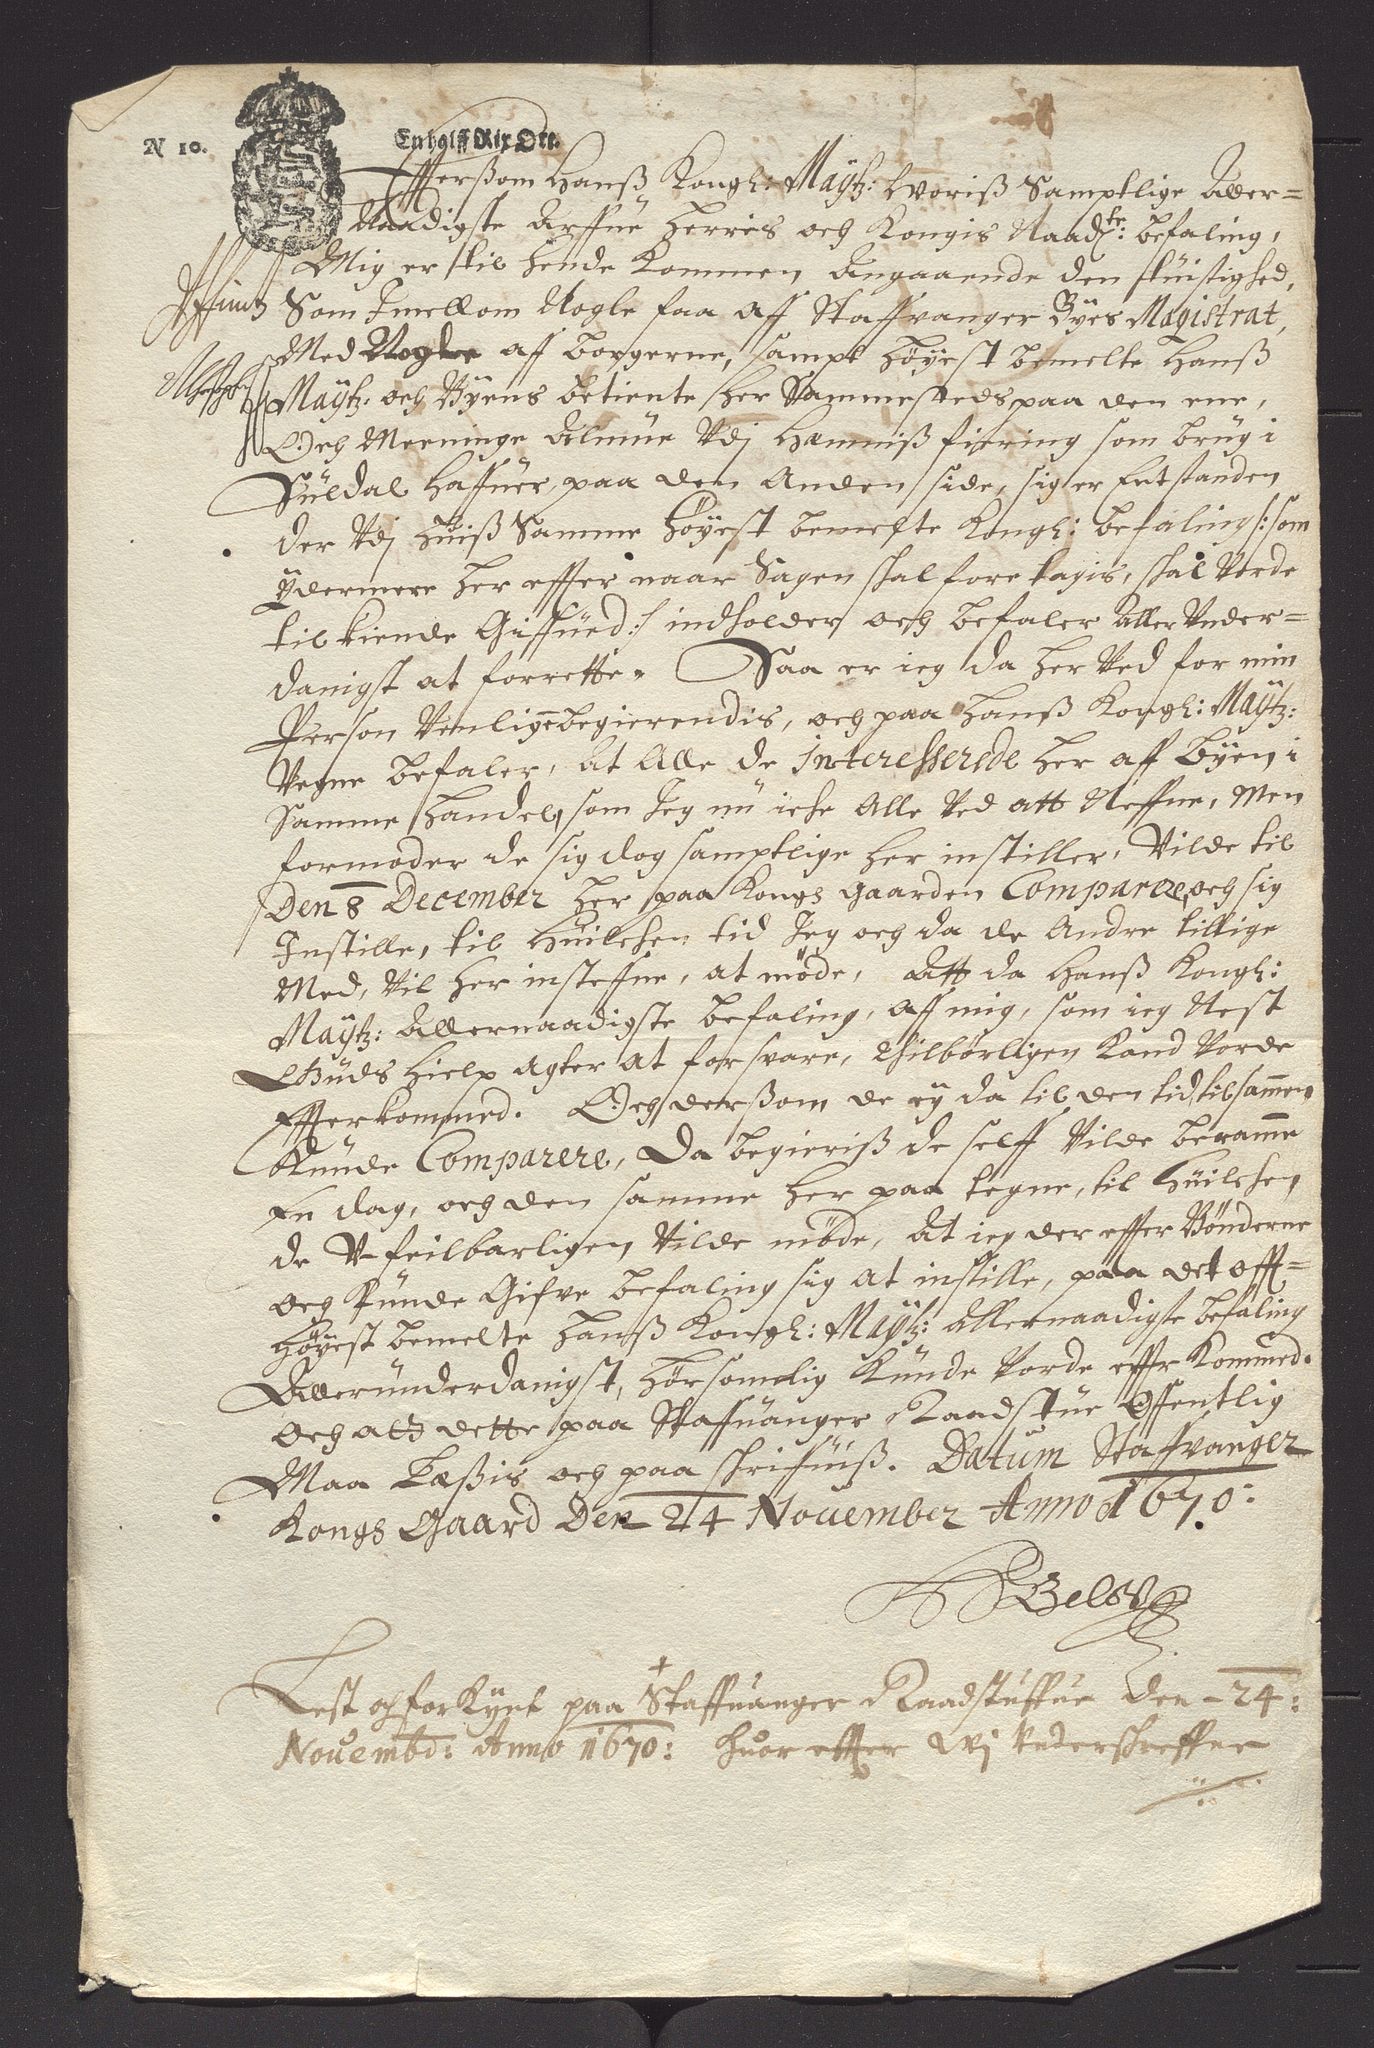 N 10.
En halff Rix Ort.
Efftersom Hanß Kongl: Maytz: Voriß Samptlige Aller=
Naadigste Arffue Herris och Kongis Naadste: befaling,
Mig er til hende Kommen, Angaaende den tuistighed,
Som Imellom Nogle faa aff Staffvanger Byes Magistrat,
Med Nogle aff borgerne, sampt Høyest bemelte Hanß
Maytz. och Byens betiente her Sammesteds paa den ene,
Och Meeninge Almue Udj Hæmniß fiering som brug i
Suldal Haffuer paa den Anden side, sig er Entstanden
der Udj Huiß Samme Høyest bemelte Kongl: befaling /: som
Ydermere her effter naar Sagen skal foretagis, skal Vorde
tilkiende Giffued :/ indholder och befaler Aller Under=
danigst at forrette. Saa er ieg da her Ved for min
Person Venligebegierendis, och paa Hanß Kongl: Maytz:
Vegne befaler, At Alle de Interesserede her aff Byen i
Samme Handel, som Jeg nu iche Alle Ved att Neffne, Men
formoder de sig dog samptlige her instiller, Vilde til
Den 8 December her paa Kongs Gaarden Comparere, och sig
Instille, til Huilchen tid Jeg och da de Andre tillige
Med, Vil her insteffne, at møde, Att da Hanß Kongl:
Maytz: Allernaadigste befaling, aff mig, som ieg Nest
Guds Hielp Agter at forsvare, tilbørligen Kand Vorde
Effterkommed. Och dersom de ey da til den tid tilsammen
Kunde Comparere, Da begieriß de selff Vilde beramme
En dag, och den samme her paa tegne, til Huilchen
de U-feilbarligen Vilde møde, At ieg der effter Bønderne
och Kunde Gifve befaling sig at instille, paa det offt=
Høyest bemelte Hanß Kongl: Maytz: Allernaadigste befaling
Allerunderdanigst, Hørsomelig Kunde Vorde effterkommed.
Och att dette paa Staffuanger Raadstue Offentlig
Maa Læßis och paa skriffuiß. Datum Staffvanger
Kongs Gaard Den 24 Nouember Anno 1670:
Lest och forkynt paa Staffuanger Raadstuffue Den 24:
Nouembr: Anno 1670: huor effter Wj Underschreffne